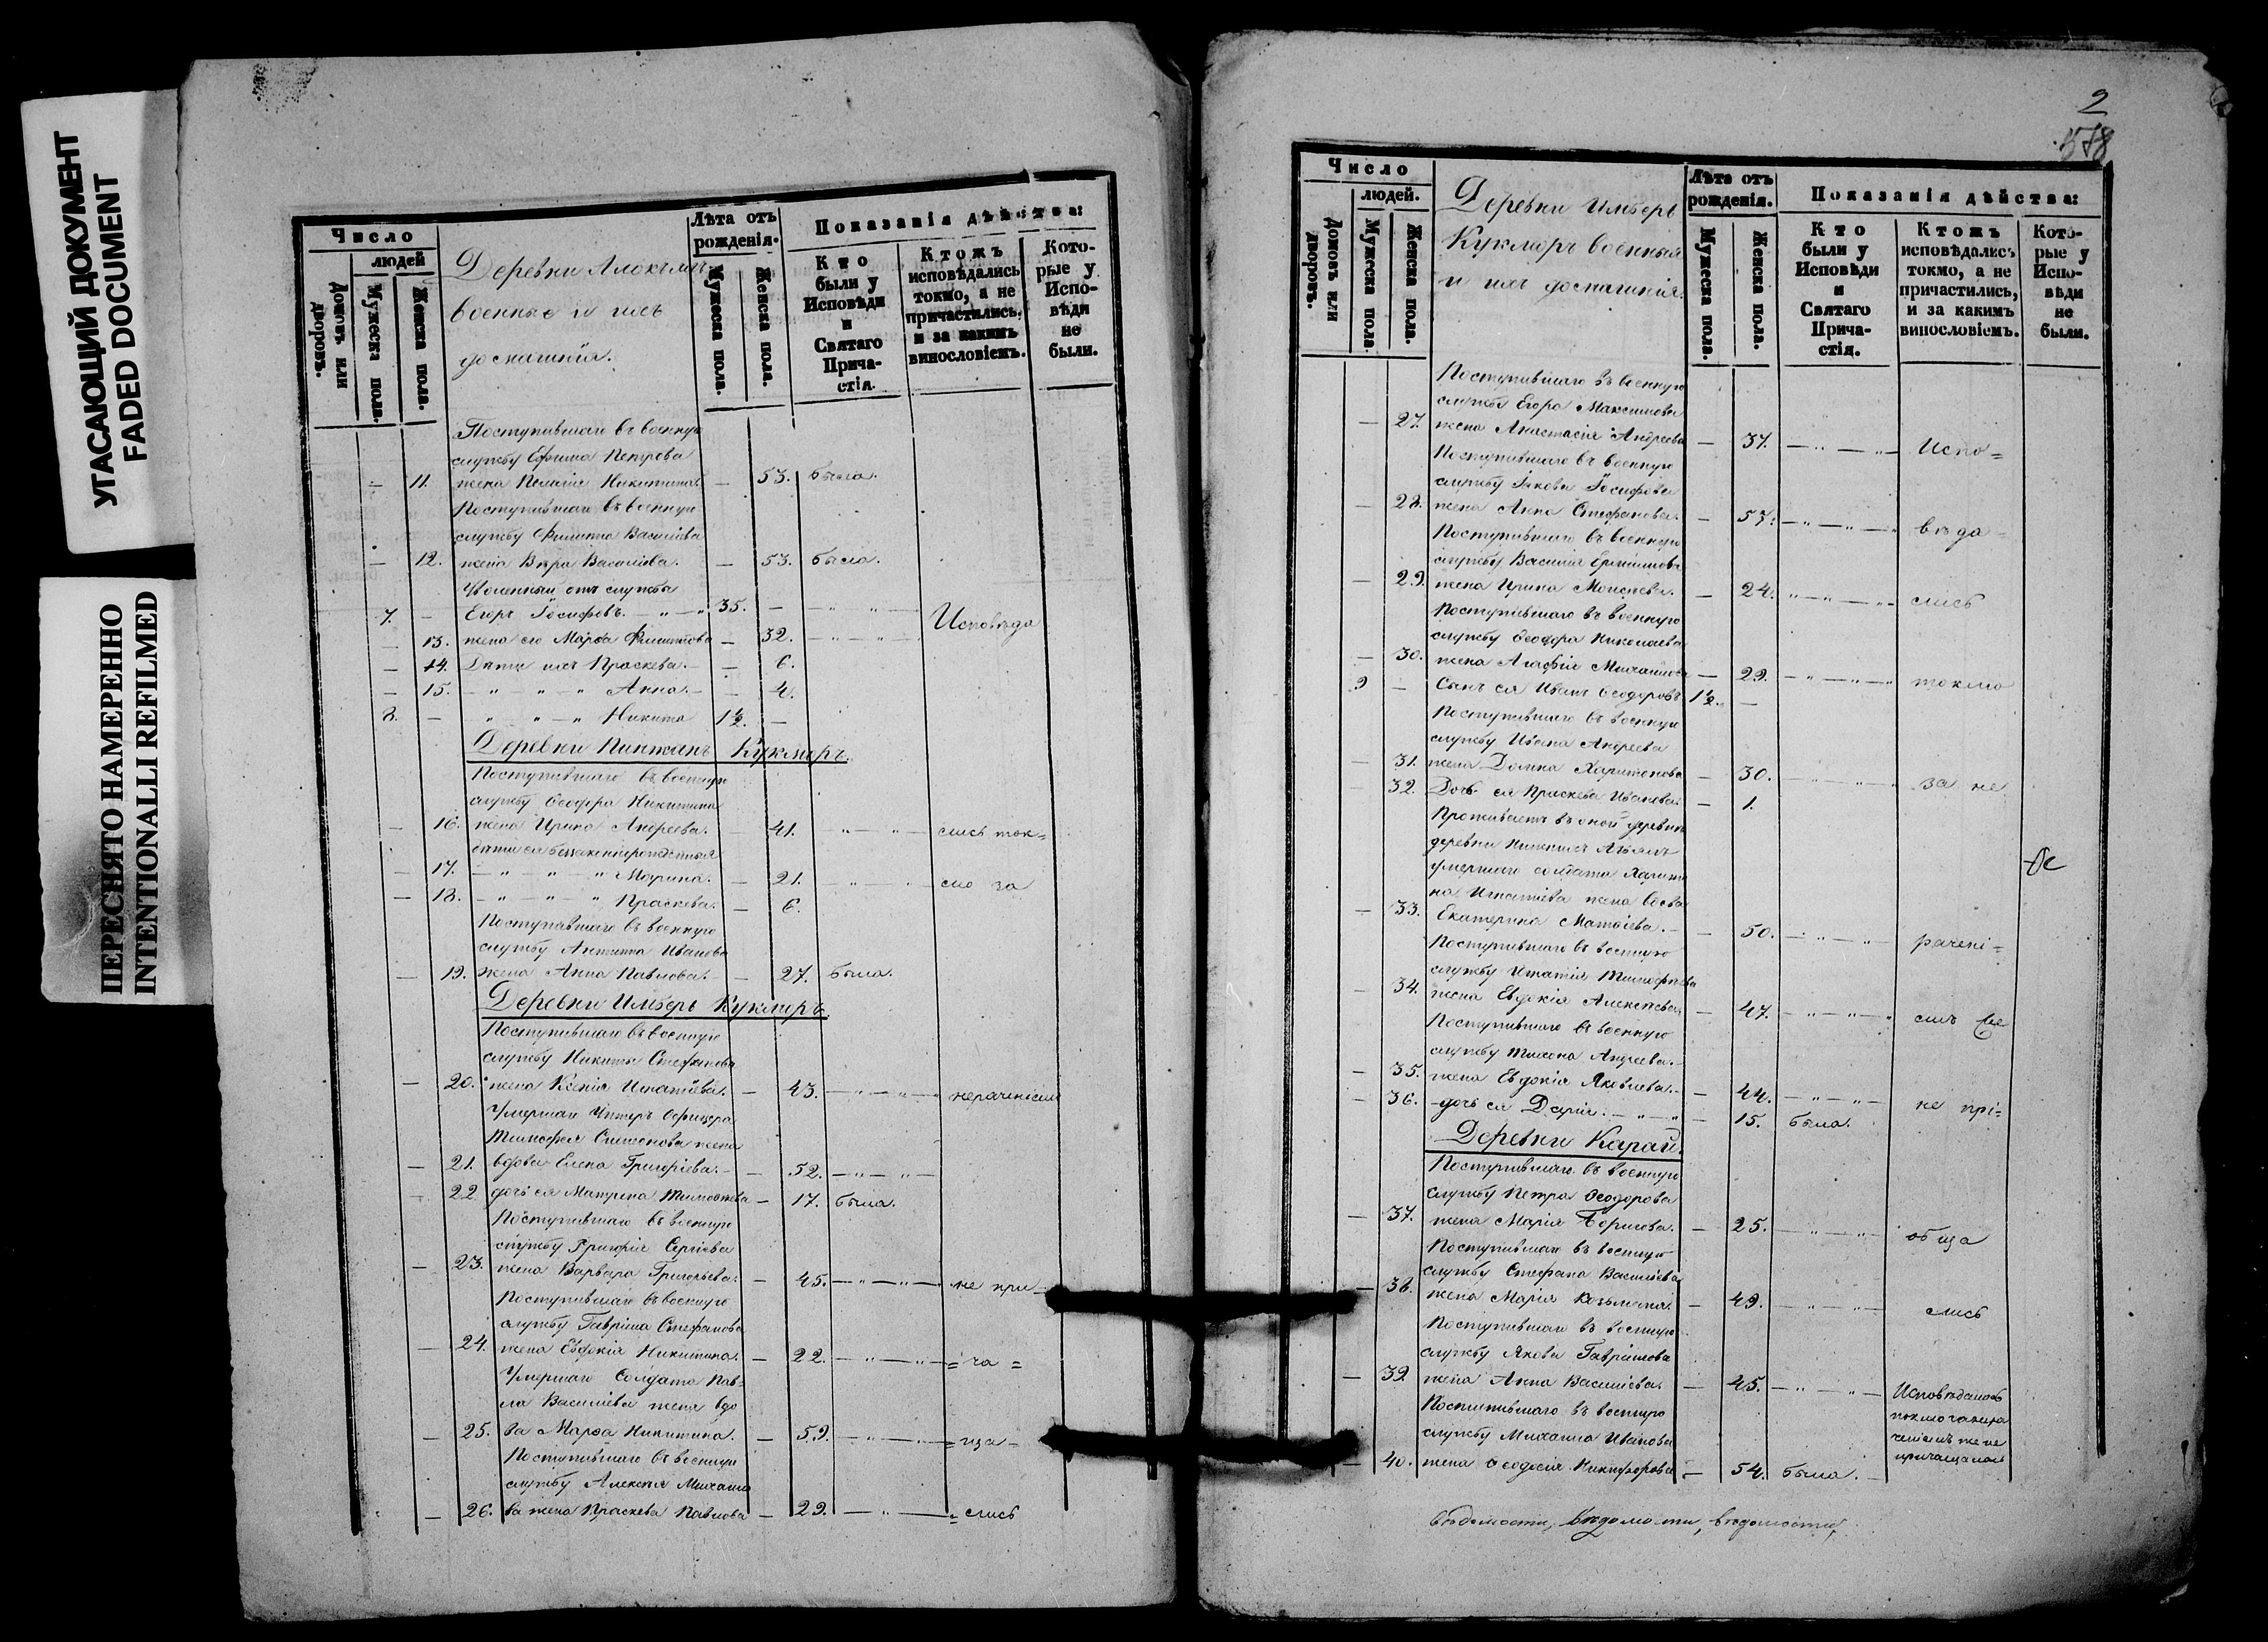 УГАСАЮЩИЙ ДОКУМЕНТ
FADED DOCUMENT
ПЕРЕСНЯТО НАМЕРЕННО
INTENTIONALLI REFILMED
Число
людей
Домовъ или дворовъ.
Мужеска пола.
Женска пола.
Деревни
военные и ихъ
домашнія.
Лѣта отъ рожденія.
Мужеска пола.
Женска пола.
Показанія дѣйства:
Кто были у Исповѣди и Святаго Прича-стія.
Ктожъ исповѣдались токмо, а не причастились, и за какимъ винословіемъ.
Кото-рые у Испо-вѣди не были.
Поступившаго въ военную
службу Ефима Петрова
— 11. жена Пелагія Никитина. — 53. была.
Поступившаго въ военную
службу Филиппа Василіева
— 12. жена Вѣра Василіева. — 53. была.
Уволенный отъ службы
7. — Егоръ Іосифовъ. — „ — „ 35. — „ „ — Исповѣда
— 13. жена его Марѳа Филиппова — 32. — „ — „ —
— 14. Дѣти ихъ Праскева. — — 6.
— 15. — „ — „ — „ Анна. — — 4.
8. — „ „ — „ Никита 1½. —
Деревни Пинжанъ Кукморъ.
Поступившаго въ военную
службу Ѳеодора Никитина
— 16. жена Ирина Андреева. — 41. „ — „ — лись ток=
дѣти ея беззаконнорожденныя
— 17. — „ — „ — „ Марина. — 21. — „ — „ — мо за
— 18. — „ — „ — „ Праскева. — 6.
Поступившаго въ военную
службу Антипа Иванова
— 19. жена Анна Павлова. — — 27. была.
Деревни Имберь Кукморъ.
Поступившаго въ военную
службу Никиты Стефанова
— 20. жена Ксенія Игнатіева. — 43. — „ — „ — нераченіемъ
Умершаго Унтеръ Офицера
Тимофея Симеонова жена
— 21. вдова Елена Григоріева. — — 52. — „ — „
— 22 дочь ея Матрена Тимофеева — 17. была.
Поступившаго въ военную
службу Григорія Сергіева
— 23. жена Варвара Григорьева. — 45. — „ — „ — не при=
Поступившаго въ военную
службу Гавріила Стефанова
— 24. жена Евдокія Никитина. — 22. — „ — „ — = ча =
Умершаго Солдата Пав=
ла Василіева жена вдо
— 25. ва Марѳа Никитина. — 59. — „ — „ — = ща =
Поступившаго въ военную
службу Алексѣя Михайло
— 26. ва жена Праскева Павлова — 29. — „ — „ — = лись
2
578
Число
людей.
Домовъ или дворовъ.
Мужеска пола.
Женска пола.
Деревни Имберь
Кукморъ военныя
и ихъ домашнія.
Лѣта отъ рожденія.
Мужеска пола.
Женска пола.
Показанія дѣйства:
Кто были у Исповѣди и Святаго Прича-стія.
Ктожъ исповѣдались токмо, а не причастились, и за какимъ винословіемъ.
Кото-рые у Испо-вѣди не были.
Поступившаго въ военную
службу Егора Максимова
— 27. жена Анастасія Андреева — 37. — „ — „ — Испо=
Поступившаго въ военную
службу Іакова Іосифова
— 28. жена Анна Стефанова. — 57. — „ — „ — вѣда=
Поступившаго въ военную
службу Василія
— 29. жена Ирина Моисеева. — 24. „ — „ — „ лись
Поступившаго въ военную
службу Ѳеодора Николаева
— 30. жена Агафія Михайлова — 29. — „ — „ — „ токмо
9 — Сынъ ея Иванъ Ѳеодоровъ 1½. —
Поступившаго въ военную
службу Ивана Андреева
— 31. жена Домна Харитонова — 30. — „ — „ за не
— 32. Дочь ея Праскева Иванова. — 1.
Проживаетъ въ оной деревнѣ
деревни
умершаго солдата Харито
на Игнатіева жена вдова
— 33. Екатерина Матвіева. — — 50. — „ — „ — рачені=
Поступившаго въ военную
службу Игнатія Тимофѣева
— 34. жена Евдокія Алексѣева — 47. — „ — „ — емъ же
Поступившаго въ военную
службу Тихона Андреева.
— 35. жена Евдокія Яковлева. — 44. — „ — „ — не прі=
— 36. дочь ея Дарія. — „ — „ — 15. была.
Деревни Карай.
Поступившаго въ военную
службу Петра Ѳеодорова
— 37. жена Марія Борисова. — 25. — „ — „ — обща
Поступившаго въ военную
службу Стефана Василіева
— 38. жена Марія Козьмина. — 49. — „ — „ — лись
Поступившаго въ военную
службу Якова Гавріилова
— 39. жена Анна Василіева. — 45. — „ — „ — Исповѣдалась
токмо
же не
причащалась
Поступившаго въ военную
службу Михаила Иванова
— 40. жена Ѳеодосія Никифорова — 54. была. —
вѣдомости, вѣдомости, вѣдомости,